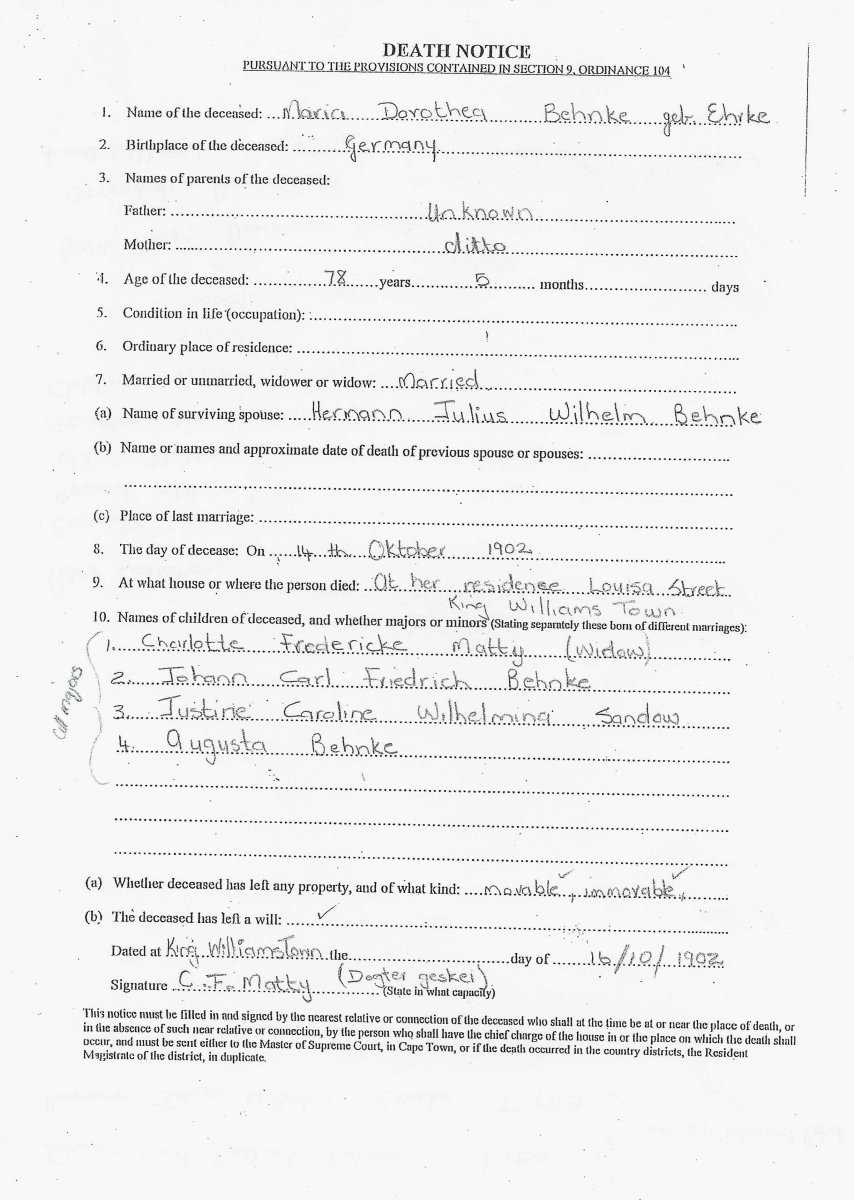 DEATH NOTICE
PURSUANT TO THE PROVISIONS CONTAINED IN SECTION 9, ORDINANCE 104
1. Name of the deceased: Maria Dorothea Behnke geb. Ehrke
2. Birthplace of the deceased: Germany
3. Names of parents of the deceased:
Father: Unknown
Mother: ditto
4. Age of the deceased: 78 years 5 months days
5. Condition in life (occupation):
6. Ordinary place of residence:
7. Married or unmarried, widower or widow: Married
(a) Name of surviving spouse: Hermann Julius Wilhelm Behnke
(b) Name or names and approximate date of death of previous spouse or spouses:
(c) Place of last marriage:
8. The day of decease: On 14 th Oktober 1902
9. At what house or where the person died: At her residence Louisa Street
King Williams Town
10. Names of children of deceased, and whether majors or minors (Stating separately these born of different marriages):
1. Charlotte Fredericke Matty (Widow)
2. Johann Carl Friedrich Behnke
3. Justine Caroline Wilhelmina Sandow
4. Augusta Behnke
All majors
(a) Whether deceased has left any property, and of what kind: movable ✓, immovable ✓,
(b) The deceased has left a will: ✓
Dated at King Williamstown the day of 16/10/1902
Signature C.F. Matty (Dogter geskei) (State in what capacity)
This notice must be filled in and signed by the nearest relative or connection of the deceased who shall at the time be at or near the place of death, or
in the absence of such near relative or connection, by the person who shall have the chief charge of the house in or the place on which the death shall
occur, and must be sent either to the Master of Supreme Court, in Cape Town, or if the death occurred in the country districts, the Resident
Magistrate of the district, in duplicate.